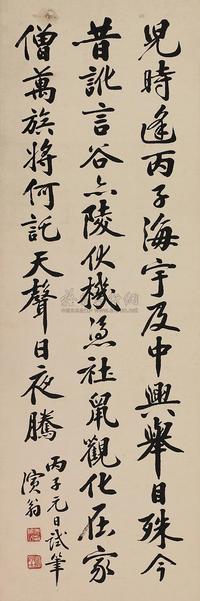 兒時逢丙子海宇及中興舉目殊今
昔訛言谷亦陵伏機憑社鼠觀化在家
僧萬族將何託天聲日夜騰
丙子元日試筆
翁